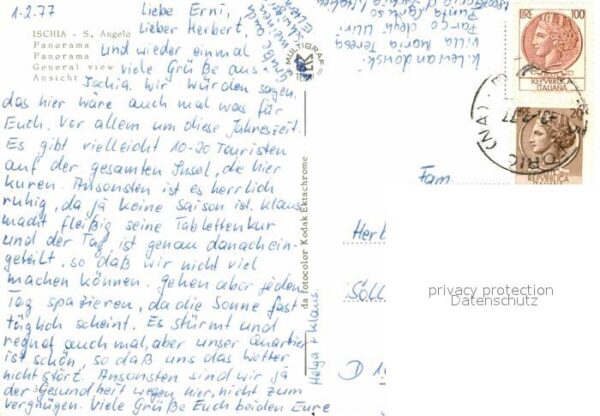 1.2.77
Liebe Erni,
Lieber Herbert,
ISCHIA - S. Angelo
Panorama
Panorama
General view
Ansicht
und wieder einmal
viele Grüße aus
Ischia. Wir würden sagen,
das hier wäre auch mal was für
Euch. Vor allem um diese Jahreszeit.
Es gibt vielleicht 10-20 Touristen
auf der gesamten Insel, die hier
kuren. Ansonsten ist es herrlich
ruhig, da ja keine Saison ist. Klaus
macht fleißig seine Tablettenkur
und der Tag ist genau danach ein-
geteilt, so daß wir nicht viel
machen können. Gehen aber jeden
Tag spazieren, da die Sonne fast
täglich scheint. Es stürmt und
regnet auch mal, aber unser Quartier
ist schön, so daß uns das Wetter
nicht stört. Ansonsten sind wir ja
der Gesundheit wegen hier, nicht zum
vergnügen. Viele Grüße Euch beiden Eure
Helga + Klaus
MULTIGRAF
da fotocolor Kodak Ektachrome
Villa Maria Teresa
LIRE 100
REPVBBLICA
ITALIANA
REPVBBLICA
(NA)
Fam
Her
Söll
D 1
privacy protection
Datenschutz